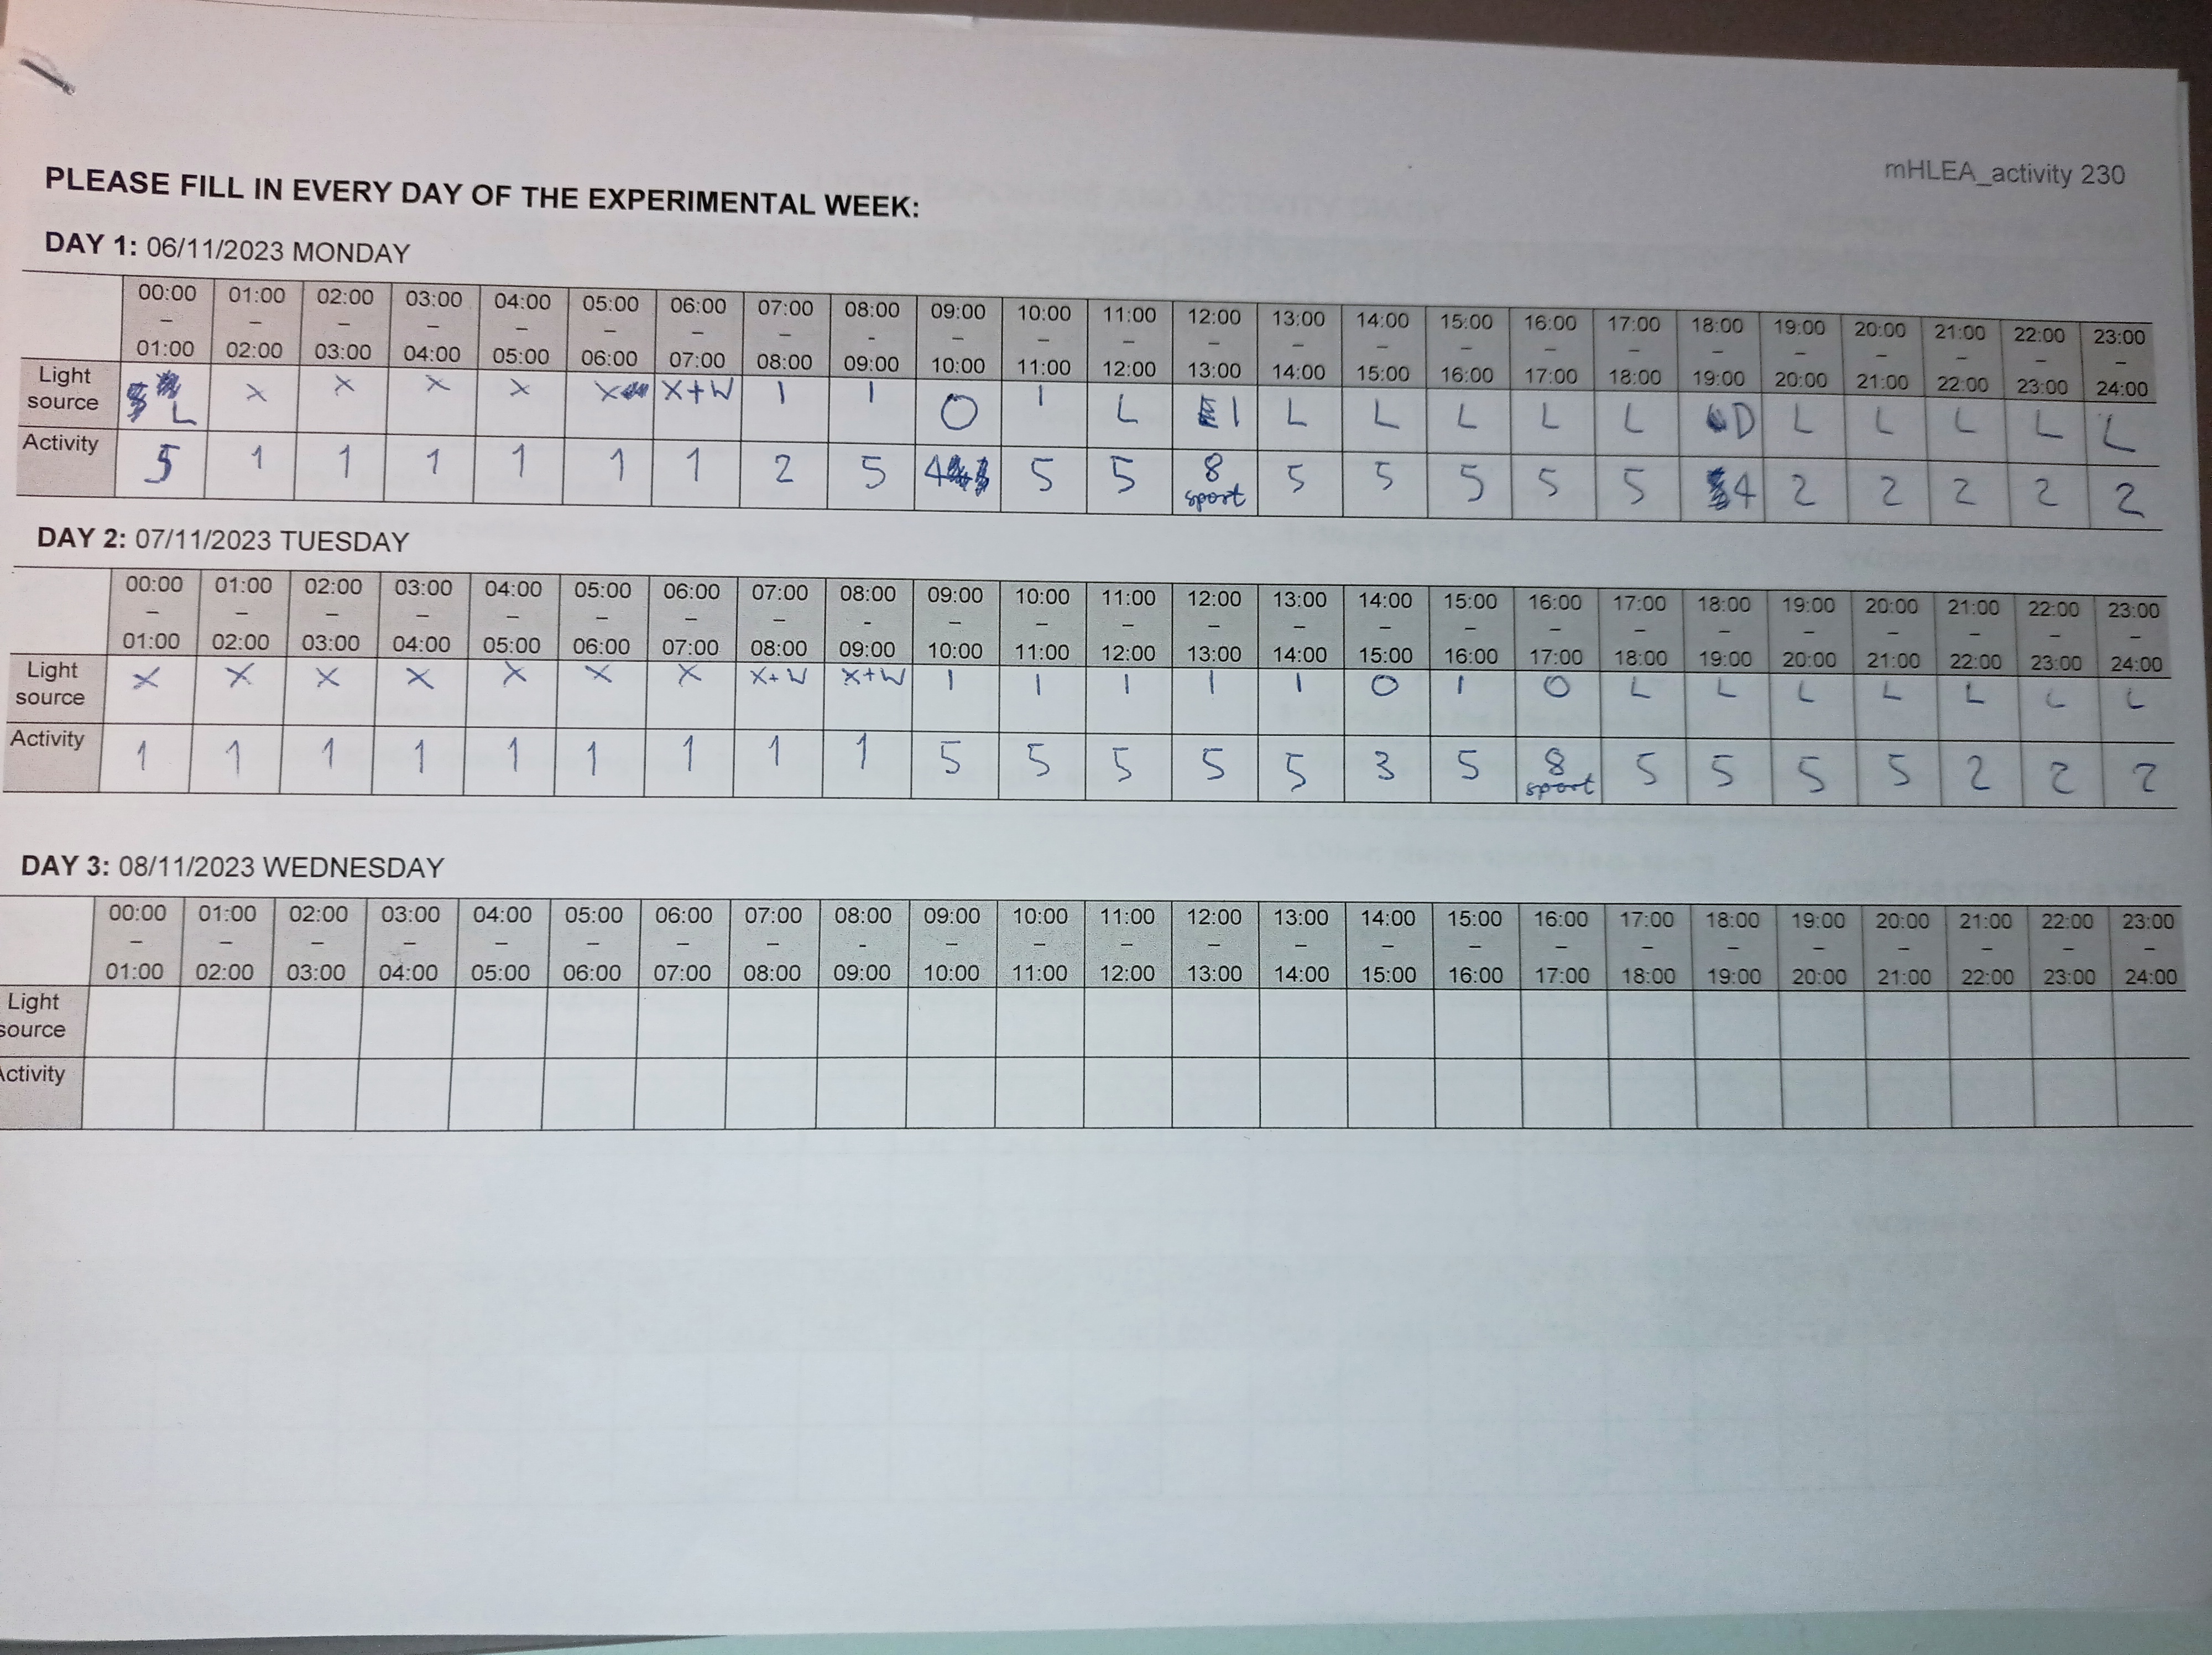 mHLEA_activity 230
PLEASE FILL IN EVERY DAY OF THE EXPERIMENTAL WEEK:
DAY 1: 06/11/2023 MONDAY
00:00 – 01:00 01:00 – 02:00 02:00 – 03:00 03:00 – 04:00 04:00 – 05:00 05:00 – 06:00 06:00 – 07:00 07:00 – 08:00 08:00 - 09:00 09:00 – 10:00 10:00 – 11:00 11:00 – 12:00 12:00 – 13:00 13:00 – 14:00 14:00 – 15:00 15:00 – 16:00 16:00 – 17:00 17:00 – 18:00 18:00 – 19:00 19:00 – 20:00 20:00 – 21:00 21:00 – 22:00 22:00 – 23:00 23:00 – 24:00
Light source L X X X X X X+W I I O I L I L L L L L D L L L L L
Activity 5 1 1 1 1 1 1 2 5 4 5 5 8 sport 5 5 5 5 5 4 2 2 2 2 2
DAY 2: 07/11/2023 TUESDAY
00:00 – 01:00 01:00 – 02:00 02:00 – 03:00 03:00 – 04:00 04:00 – 05:00 05:00 – 06:00 06:00 – 07:00 07:00 – 08:00 08:00 - 09:00 09:00 – 10:00 10:00 – 11:00 11:00 – 12:00 12:00 – 13:00 13:00 – 14:00 14:00 – 15:00 15:00 – 16:00 16:00 – 17:00 17:00 – 18:00 18:00 – 19:00 19:00 – 20:00 20:00 – 21:00 21:00 – 22:00 22:00 – 23:00 23:00 – 24:00
Light source X X X X X X X X+W X+W I I I I I O I O L L L L L L L
Activity 1 1 1 1 1 1 1 1 1 5 5 5 5 5 3 5 8 sport 5 5 5 5 2 2 2
DAY 3: 08/11/2023 WEDNESDAY
00:00 – 01:00 01:00 – 02:00 02:00 – 03:00 03:00 – 04:00 04:00 – 05:00 05:00 – 06:00 06:00 – 07:00 07:00 – 08:00 08:00 - 09:00 09:00 – 10:00 10:00 – 11:00 11:00 – 12:00 12:00 – 13:00 13:00 – 14:00 14:00 – 15:00 15:00 – 16:00 16:00 – 17:00 17:00 – 18:00 18:00 – 19:00 19:00 – 20:00 20:00 – 21:00 21:00 – 22:00 22:00 – 23:00 23:00 – 24:00
Light source
Activity